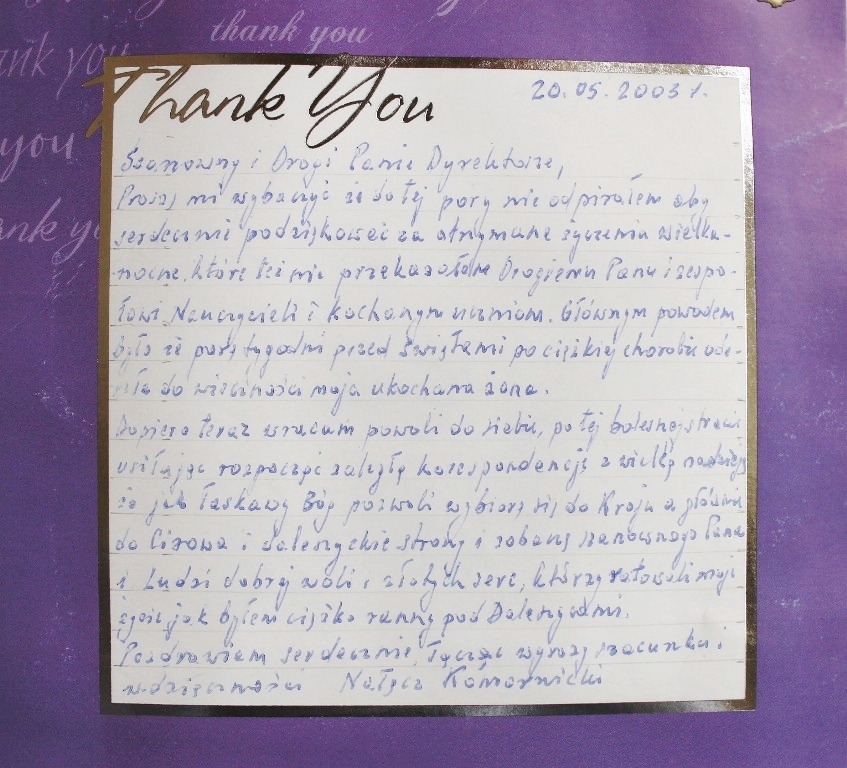 thank you
thank you
you
thank you
Thank You
20.05.2003 r.
Szanowny i Drogi Panie Dyrektorze,
Proszę mi wybaczyć że do tej pory nie odpisałem aby
serdecznie podziękować za otrzymane życzenia wielka-
nocne, które też nie przekazałem Drogiemu Panu i zespo-
łowi Nauczycieli i kochanym uczniom. Głównym powodem
było że parę tygodni przed świętami po ciężkiej chorobie ode-
szła do wieczności moja ukochana żona.
Dopiero teraz wracam powoli do siebie, po tej bolesnej stracie
usiłując rozpocząć zaległą korespondencję z wielką nadzieją
że jak łaskawy Bóg pozwoli wybiorę się do Kraju a głównie
do Cisowa i daleszyckie strony i zobaczę szanownego Pana
i Ludzi dobrej woli i złotych serc, którzy ratowali moje
życie jak byłem ciężko ranny pod Daleszycami.
Pozdrawiam serdecznie, łącząc wyrazy szacunku i
wdzięczności Nałęcz Komornicki